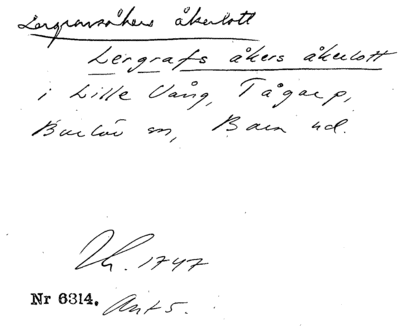 Lergravsåkers åkerlott
Lergrafs åkers åkerlott
i Lille Vång, Tågarp,
Burlöv sn, Bara hd.
Lh. 1747
Nr 6314. Ant 5.